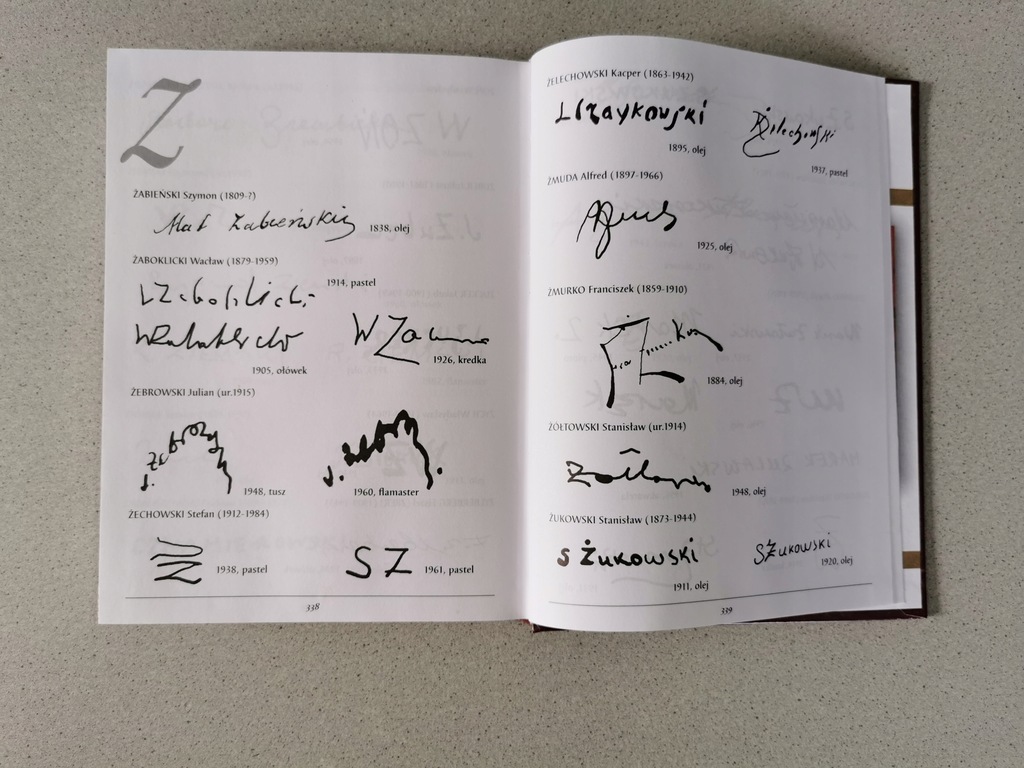 Z
ŻABIEŃSKI Szymon (1809-?)
Mal Żabieński
1838, olej
ŻABOKLICKI Wacław (1879-1959)
1914, pastel
1905, ołówek
1926, kredka
ŻEBROWSKI Julian (ur.1915)
1948, tusz
1960, flamaster
ŻECHOWSKI Stefan (1912-1984)
1938, pastel
S Z
1961, pastel
338
ŻELECHOWSKI Kacper (1863-1942)
1895, olej
Żelechowski
1937, pastel
ŻMUDA Alfred (1897-1966)
1925, olej
ŻMURKO Franciszek (1859-1910)
1884, olej
ŻÓŁTOWSKI Stanisław (ur.1914)
1948, olej
ŻUKOWSKI Stanisław (1873-1944)
S Żukowski
1911, olej
SŻukowski
1920, olej
339